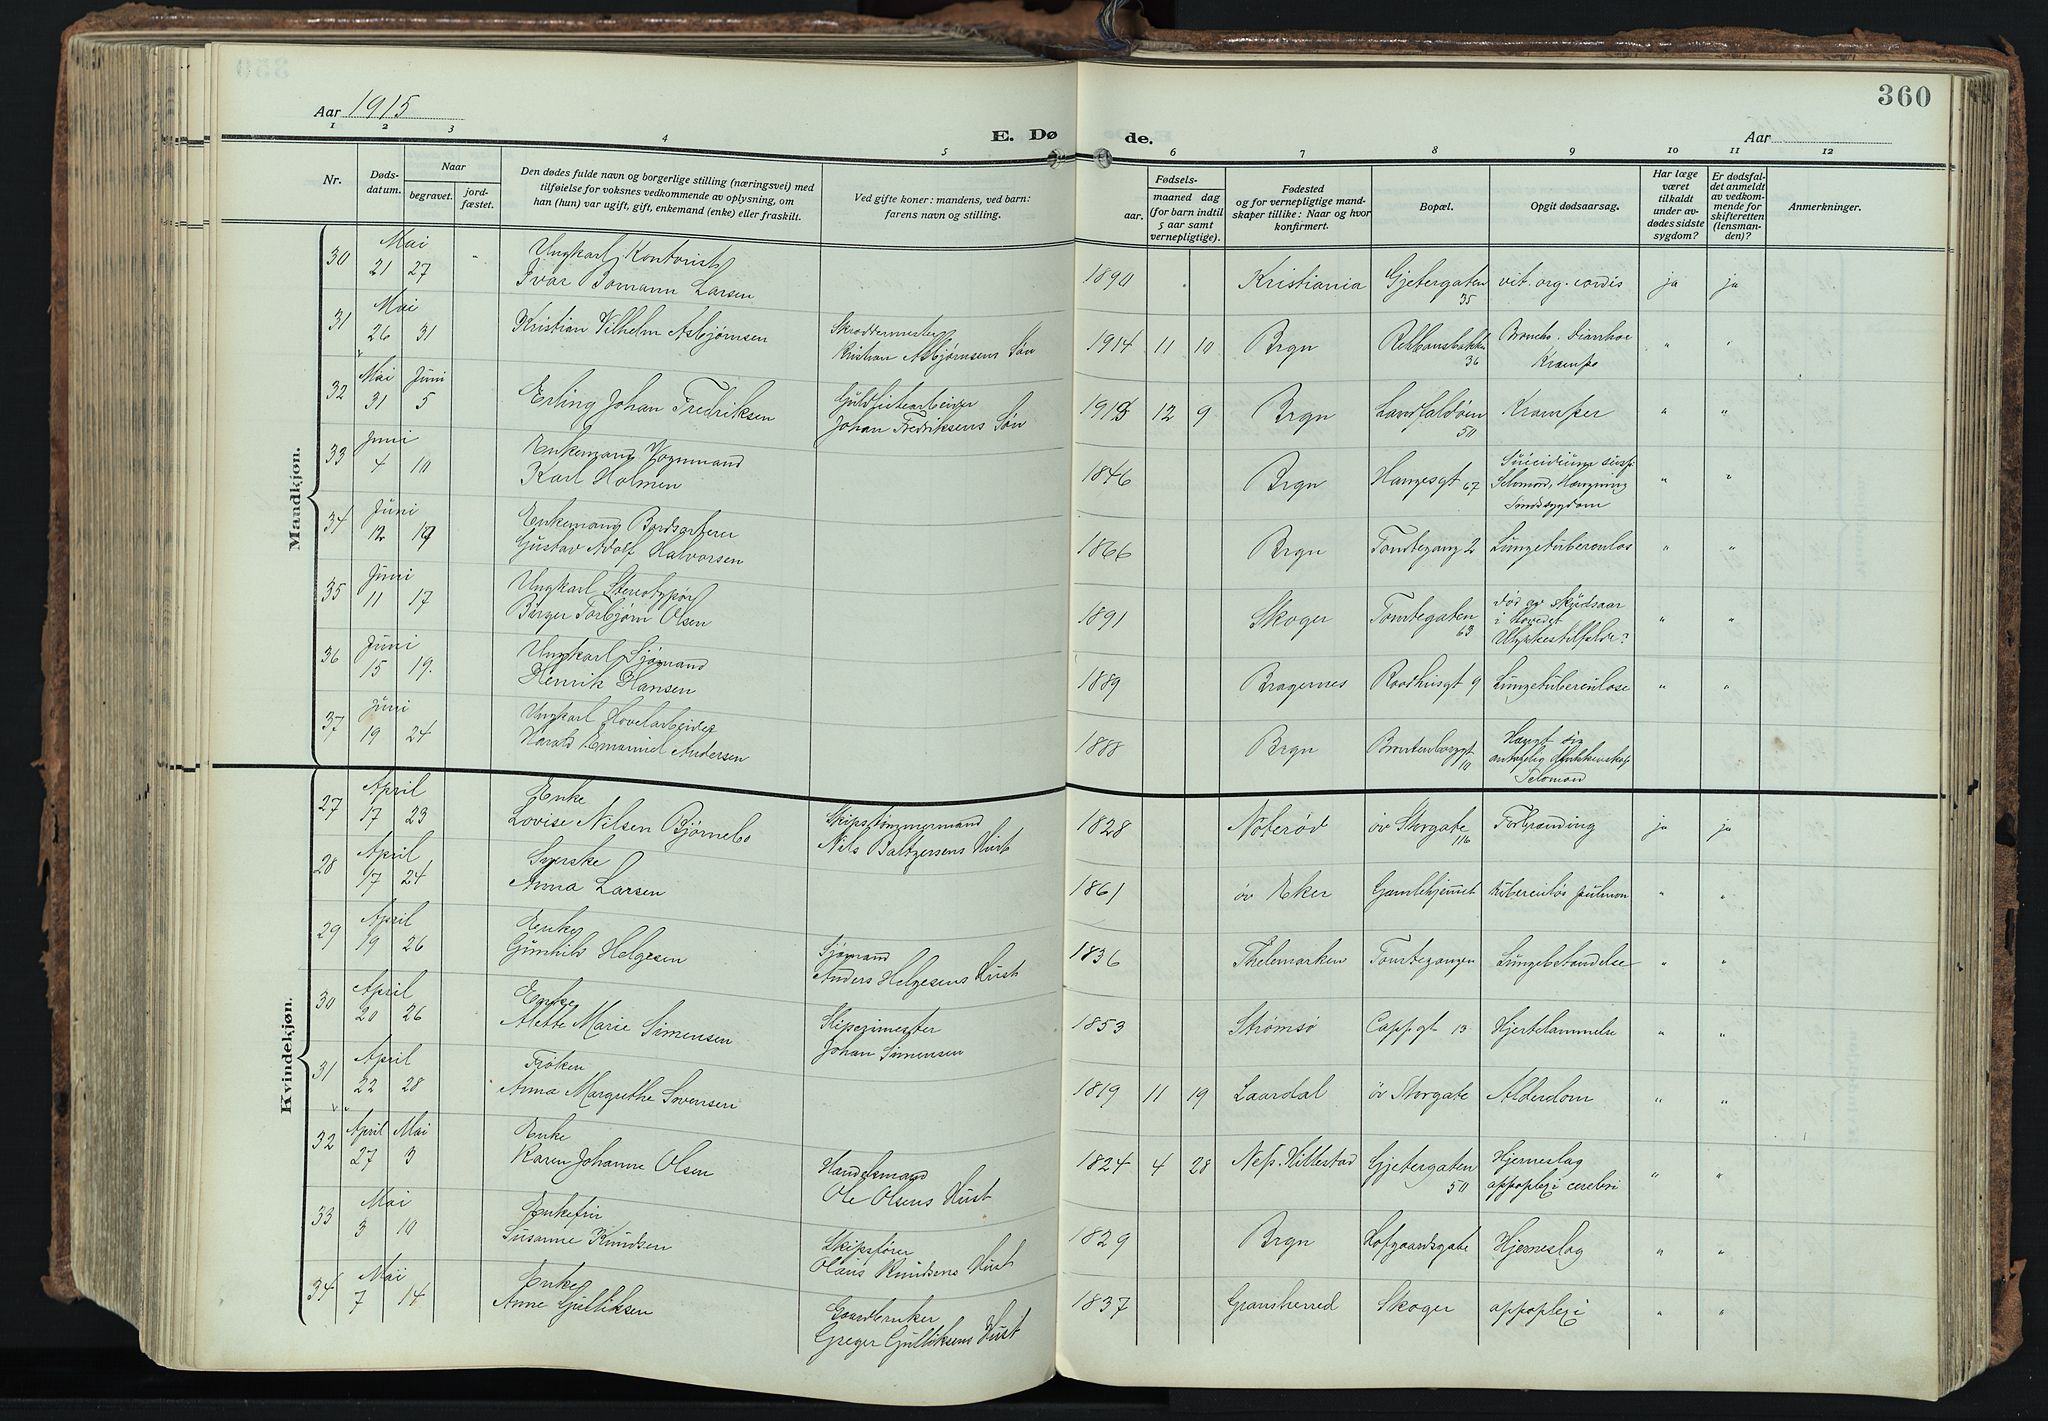 360
Aar 1915
E. Døde.
Aar
1 2 3 4 5 6 7 8 9 10 11 12
Nr.
Døds-
datum.
Naar
begravet.
jord-
fæstet.
Den dødes fulde navn og borgerlige stilling (næringsvei) med
tilføielse for voksnes vedkommende av oplysning, om
han (hun) var ugift, gift, enkemand (enke) eller fraskilt.
Ved gifte koner: mandens, ved barn:
farens navn og stilling.
Fødsels-
aar.
maaned dag
(for barn indtil
5 aar samt
vernepligtige).
Fødested
og for vernepligtige mand-
skaper tillike: Naar og hvor
konfirmert.
Bopæl.
Opgit dødsaarsag.
Har læge
været
tilkaldt
under av-
dødes sidste
sygdom?
Er dødsfal-
det anmeldt
av vedkom-
mende for
skifteretten
(lensman-
den)?
Anmerkninger.
Mandkjøn.
30 Mai 21 27 " Ungkarl Kontorist
Ivar Bomann Larsen 1890 Kristiania Gjetergaten 35 vit. org. cordis ja ja
31 Mai 26 31 Kristian Vilhelm Asbjørnsen Skræddermester
Kristian Asbjørnsens Søn 1914 11 10 Brgn 36 Broncho. Diarrhoe
Krampe " "
32 Mai 31 Juni 5 Erling Johan Fredriksen
Johan Fredriksens Søn 12 9 Brgn Landfaldøen 50 Kramper " "
33 Juni 4 10 Enkemand Vognmand
Karl Holmen 1846 Brgn Haugesgt 67 Suicidium susp.
Selvmord, Hængning
Sindssygdom " "
34 Juni 12 17 Enkemand Bordsorterer
Gustav Adolf Halvorsen 1866 Brgn Tomtegang 2 Lungetuberculos " "
35 Juni 11 17 Ungkarl Stereotypør
Birger Torbjørn Olsen 1891 Skoger Tomtegaten 63 Død av skudsaar
i hovedet
Ulykkestilfælde? " "
36 Juni 15 19. Ungkarl Sjømand
Henrik Hansen 1889 Bragernes Raadhusgt 9 Lungetuberculose " "
37 Juni 19 24 Ungkarl Høvelarbeider
Harald Emanuel Andersen 1888 Brgn 10 Hængt sig
antagelig
Selvmord
Kvindekjøn.
27 April 17 23 Enke
Lovise Nilsen Bjørnebo Skipstømmermand
Nils Baltzersens Hust 1828 Nøterød øv Storgate 116 Forbrænding ja ja
28 April 17 24 Syerske
Anna Larsen 1861 øv Eker Gamlehjemmet tuberculos pulmon " "
29 April 19 26 Enke
Gunhild Helgesen Sjømand
Anders Helgesens Hust 1836 Thelemarken Tomtegangen Lungebetændelse " "
30 April 20 26 Enke
Alette Marie Simensen
Johan Simensen 1853 Strømsø Cappgt 13 Hjertelammelse " "
31 April 22 28 Frøken
Anna Margrethe Sørensen 1819 11 19 Laardal øv Storgate Alderdom " "
32 April 27 Mai 3 Enke
Karen Johanne Olsen Handelsmand
Ole Olsens Hust 1824 4 28 Nes. Hillestad Gjetergaten 50 Hjerneslag
appoplexi cerebri " "
33 Mai 3 10 Enkefru
Susanne Knudsen Skipsfører
Olaus Knudsens Hust 1829 Brgn Hofgaardsgate Hjerneslag " "
34 Mai 7 14 Enke
Anne Gulliksen Gaardbruker
Greger Gulliksens Hust 1837 Gransherred Skoger appoplexi " "